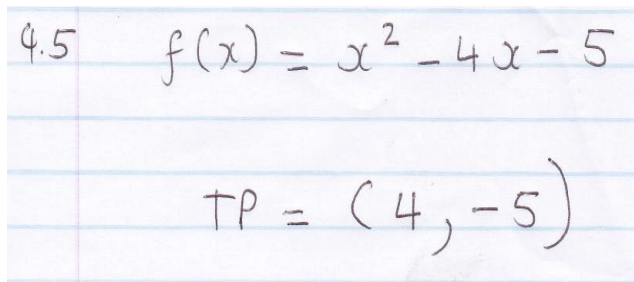 4.5 f(x) = x² - 4x - 5
TP = (4, -5)